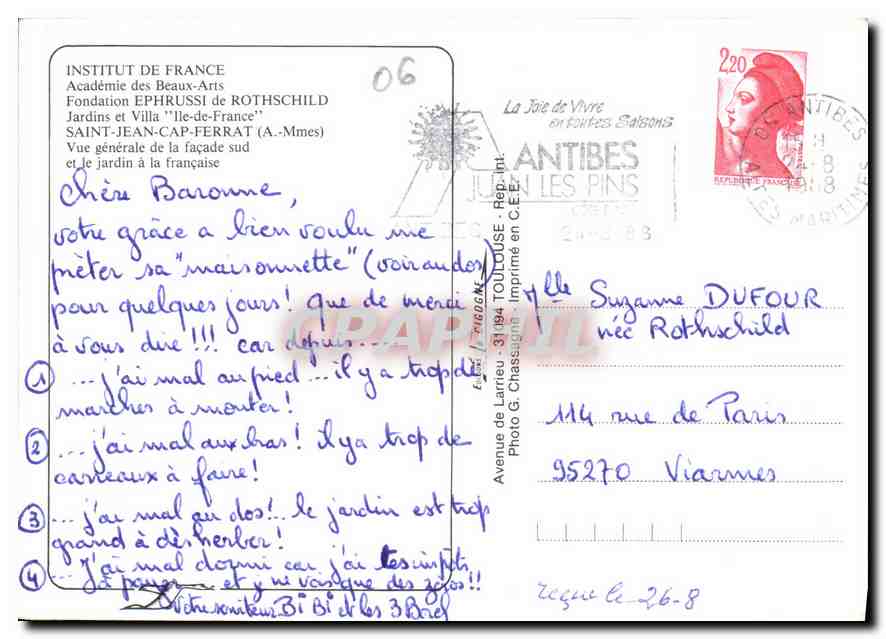 INSTITUT DE FRANCE
Académie des Beaux-Arts
Fondation EPHRUSSI de ROTHSCHILD
Jardins et Villa "Ile-de-France"
SAINT-JEAN-CAP-FERRAT (A.-Mmes)
Vue générale de la façade sud
et le jardin à la française
06
Chère Baronne,
votre grâce a bien voulu me
prêter sa "maisonnette" (voir au dos)
pour quelques jours! que de merci
à vous dire!!! car depuis...
① ...j'ai mal au pied!.. il y a trop de
marches à monter!
② ...j'ai mal aux bras! il y a trop de
carreaux à faire!
③ ...j'ai mal au dos!.. le jardin est trop
grand à désherber!
④ ...J'ai mal dormi car j'ai tes impôts
à payer et y ne vois que des zéros!!
Votre serviteur BiBi et les 3
La Joie de Vivre
en toutes Saisons
ANTIBES
JUAN LES PINS
24-8-88
2,20
REPUBLIQUE FRANÇAISE
06 ANTIBES
H
24-8
1988
ALPES MARITIMES
Editions la CIGOGNE
Avenue de Larrieu - 31094 TOULOUSE - Rep. int.
Photo G. Chassagne - Imprimé en C.E.E.
CPAPHIL
Mlle Suzanne DUFOUR
née Rothschild
114 rue de Paris
95270 Viarmes
reçue le 26-8